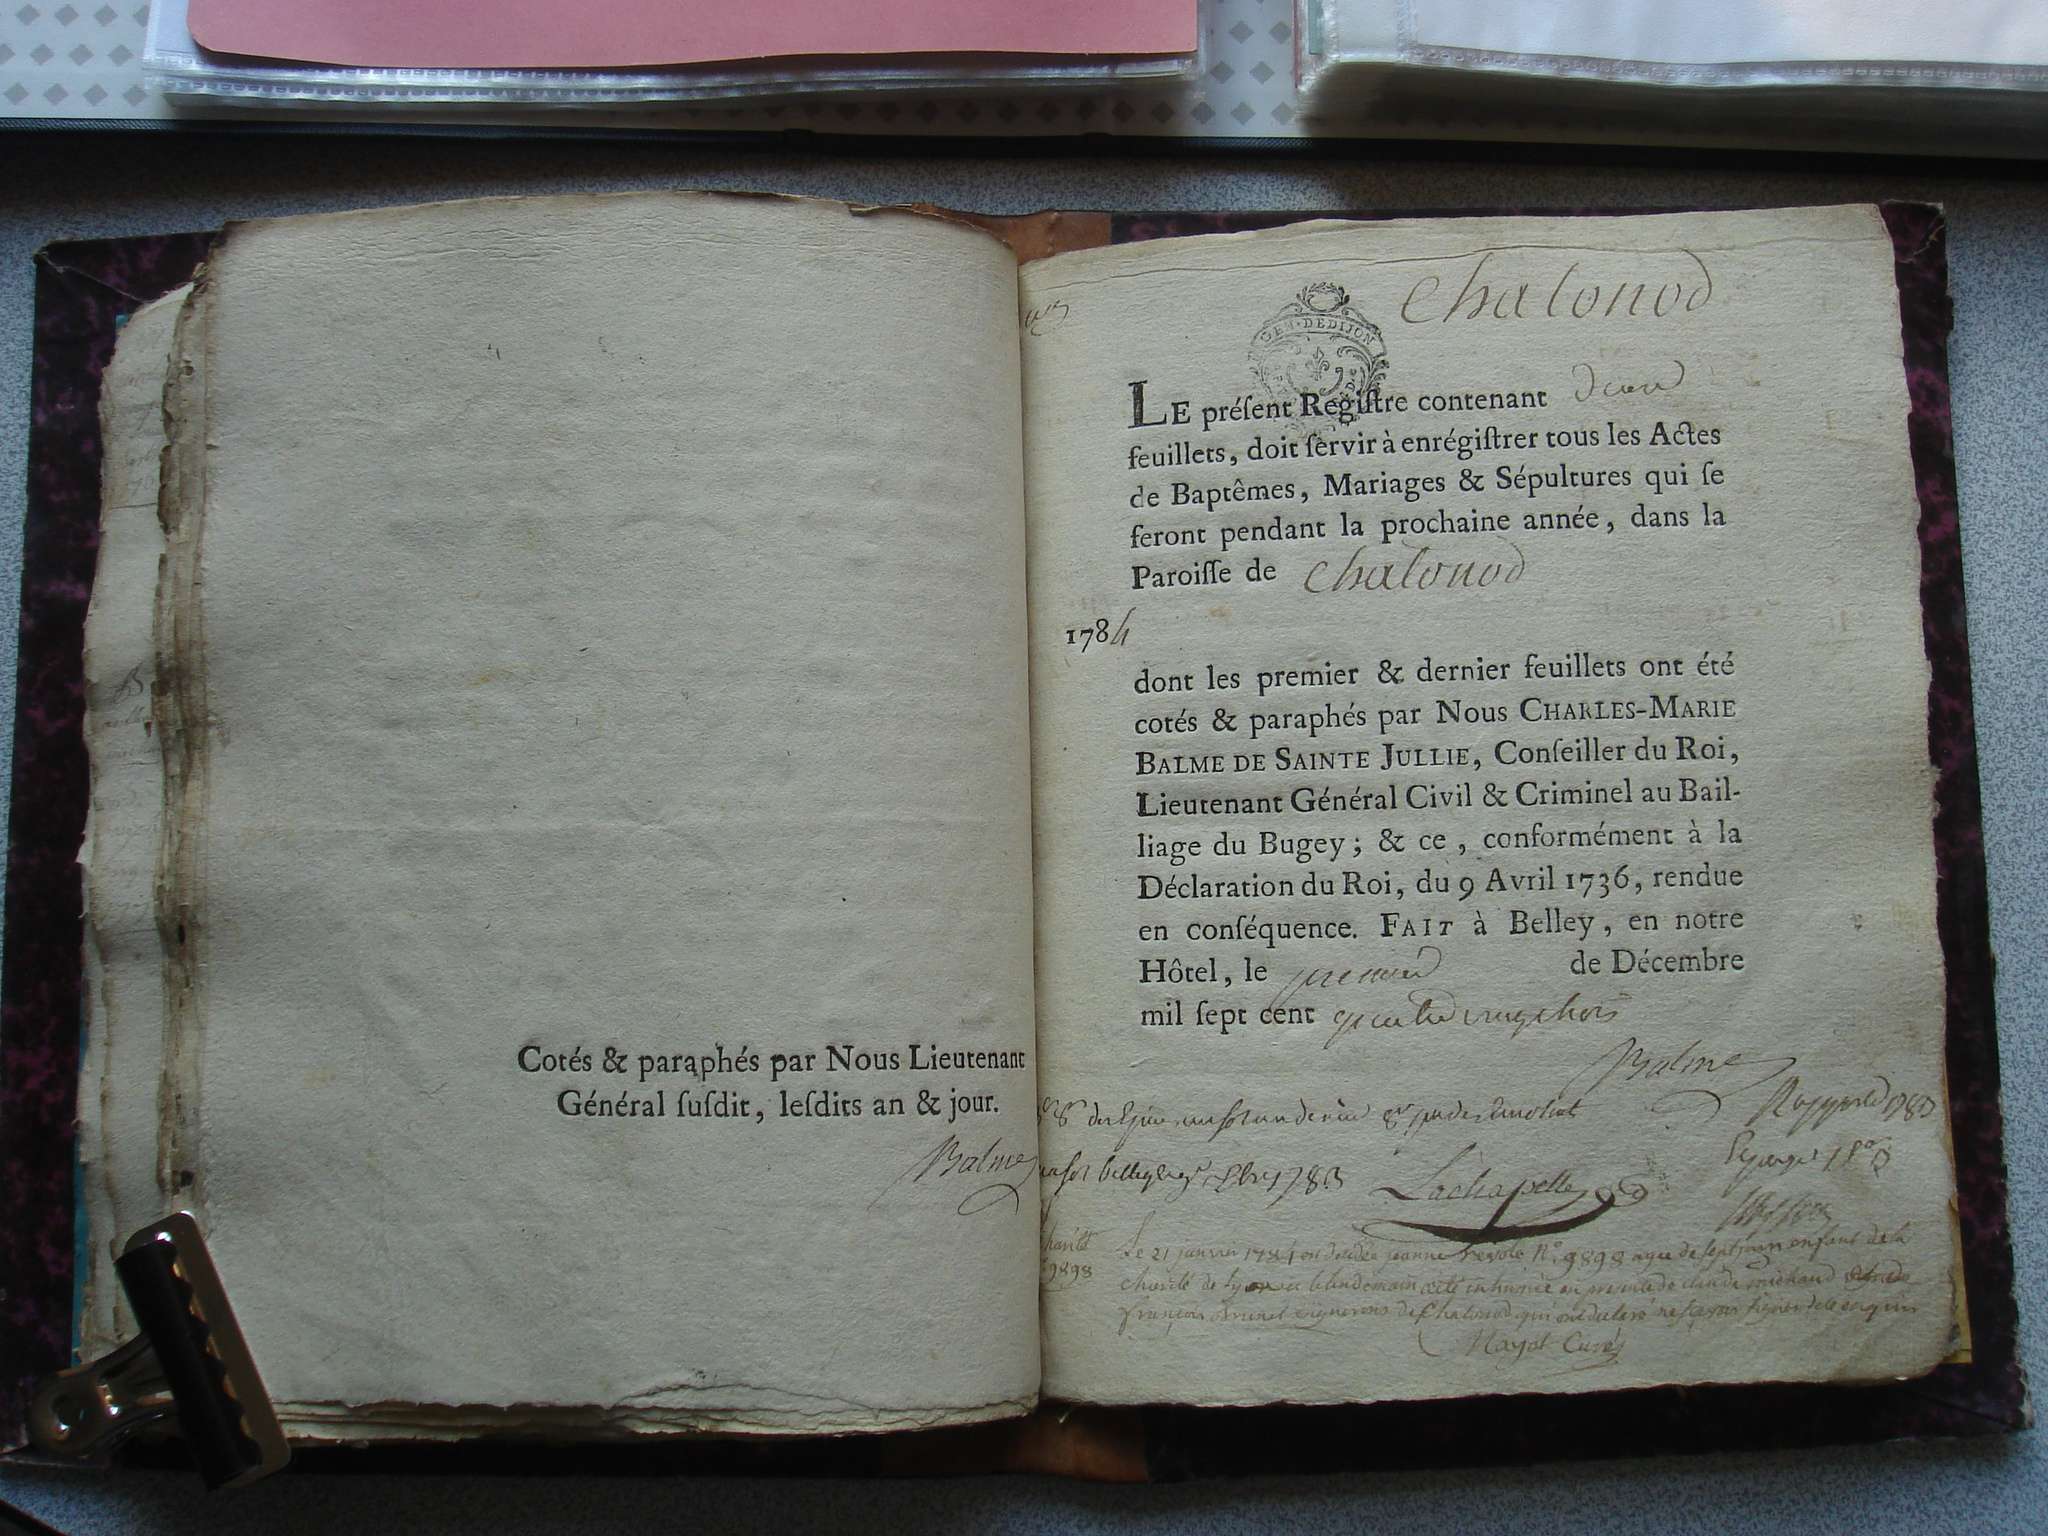 Cotés & paraphés par Nous Lieutenant
Général ſuſdit, leſdits an & jour.
Balme
Chalonod
GEN·DEDIJON
LE préſent Regiſtre contenant deux
feuillets, doit ſervir à enrégiſtrer tous les Actes
de Baptêmes, Mariages & Sépultures qui ſe
feront pendant la prochaine année, dans la
Paroiſſe de Chalonod
1784
dont les premier & dernier feuillets ont été
cotés & paraphés par Nous CHARLES-MARIE
BALME DE SAINTE JULLIE, Conſeiller du Roi,
Lieutenant Général Civil & Criminel au Bail-
liage du Bugey; & ce, conformément à la
Déclaration du Roi, du 9 Avril 1736, rendue
en conſéquence. FAIT à Belley, en notre
Hôtel, le premier de Décembre
mil ſept cent quatre vingt trois
Balme
1783
Lachapelle
9898
Le 21 janvier 1784 est decedée jeanne N.º 9898 agée de sept enfant de la
charité de lyon et le lendemain a été inhumée en presence de claude michaud
françois Brunet vignerons de Chalonod qui ont declaré ne scavoir signer de ce enquis
Mayot Curé